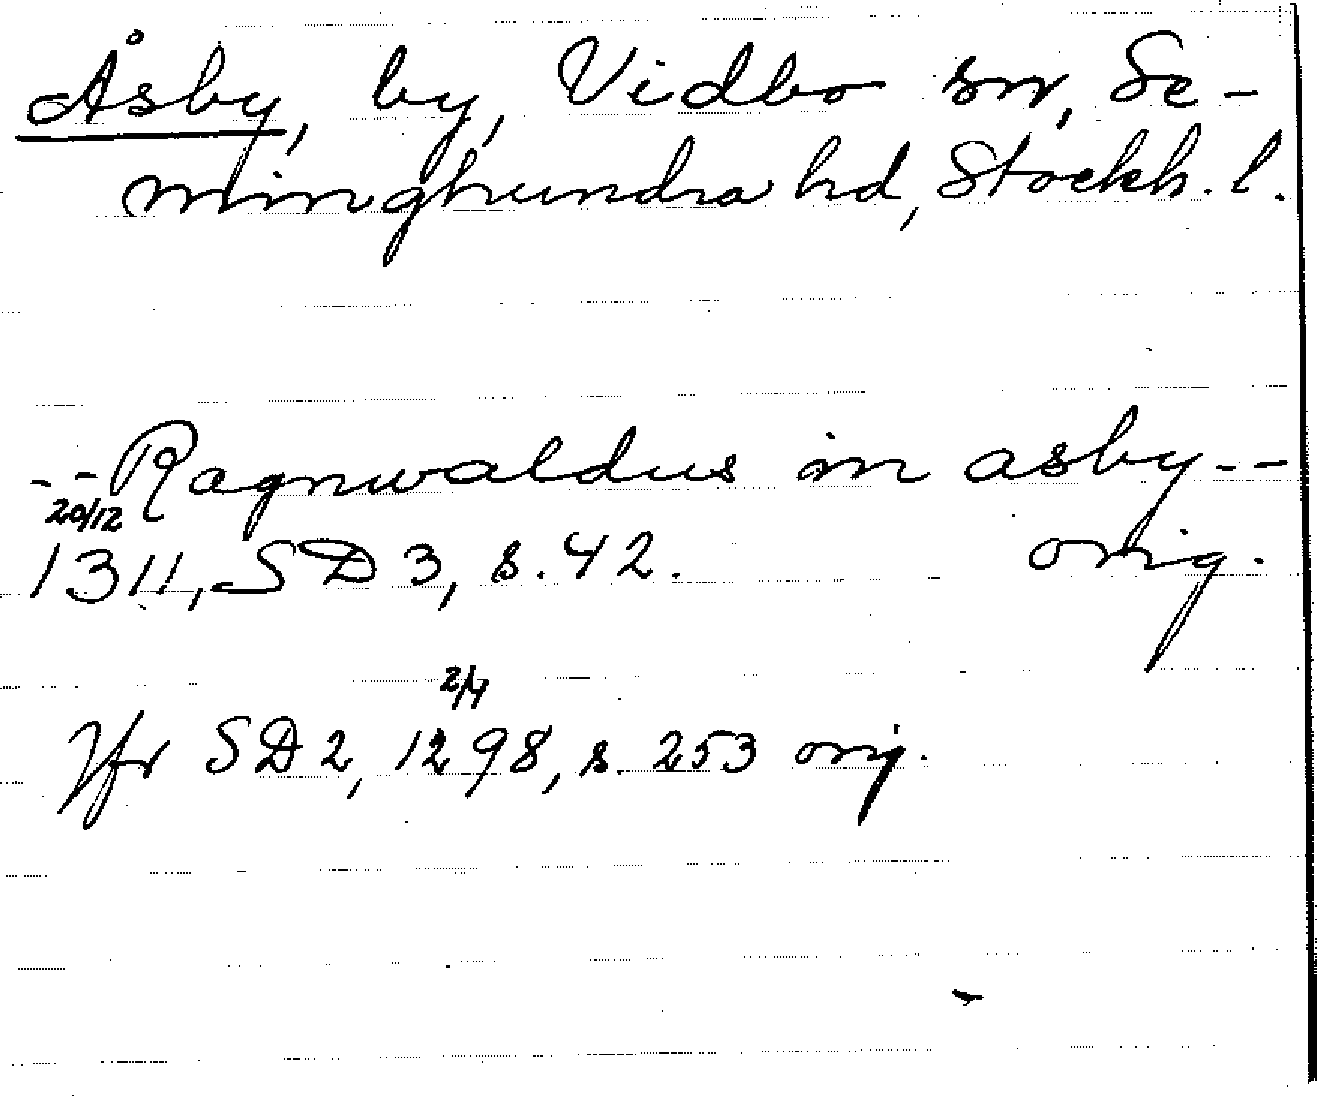 Åsby, by, Vidbo sn, Se-
minghundra hd, Stockh. l.
- - Ragnwaldus in asby - -
20/12
1311, SD 3, s. 42. orig.
2/4
Jfr SD 2, 1298, s. 253 orig.